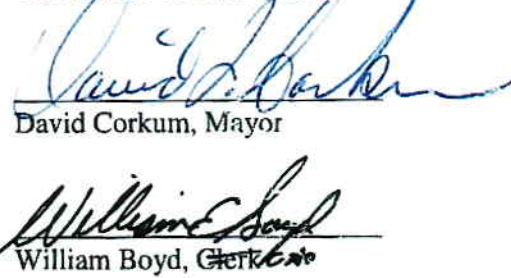 David L. Corkum
David Corkum, Mayor
William E Boyd
William Boyd, Clerk